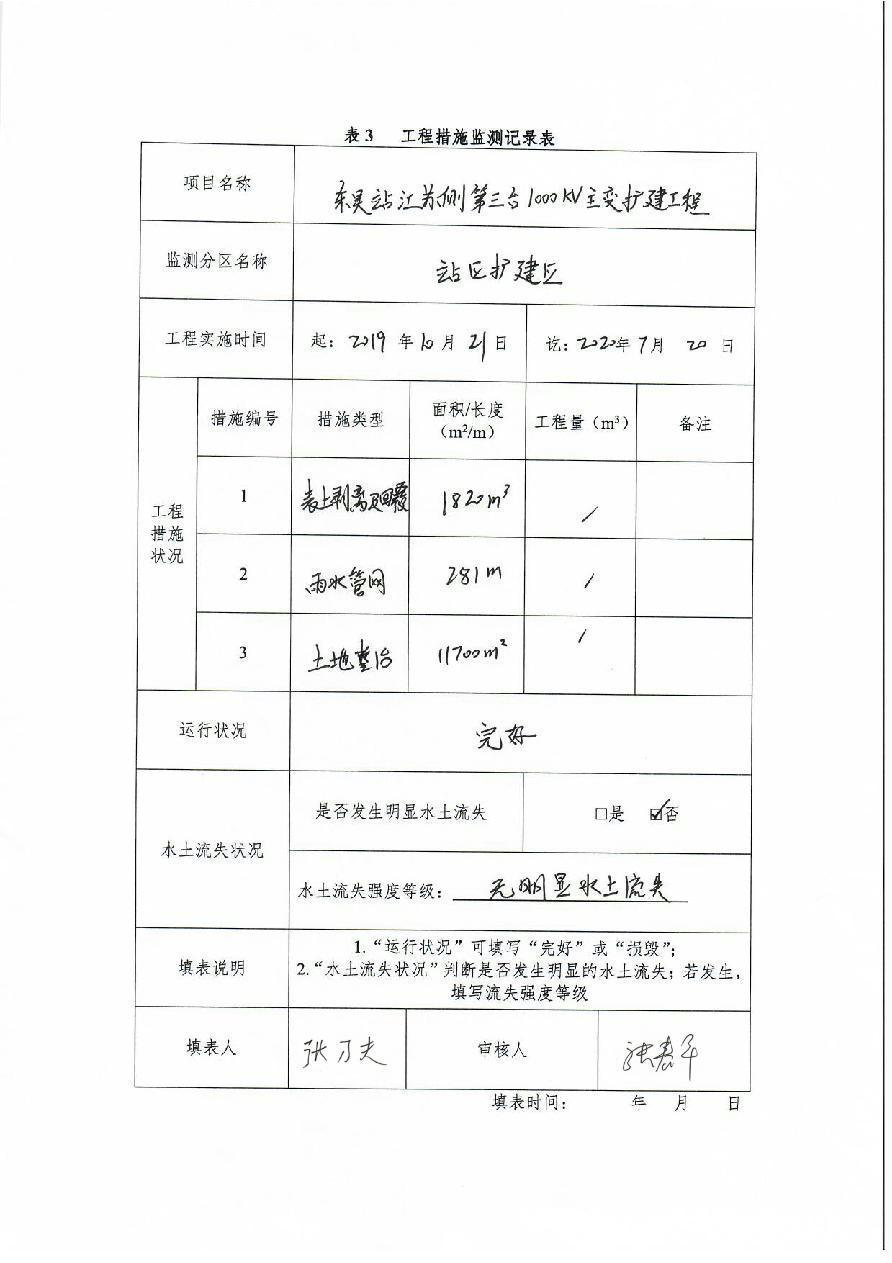 表3 工程措施监测记录表
项目名称 东吴站江苏侧第三台1000KV主变扩建工程
监测分区名称 站区扩建区
工程实施时间 起：2019年10月21日 讫：2020年7月20日
工程措施状况
措施编号 措施类型 面积/长度（m²/m） 工程量（m³） 备注
1 表土剥离及回覆 1820m³ /
2 雨水管网 281m /
3 土地整治 11700m² /
运行状况 完好
水土流失状况
是否发生明显水土流失 □是 ☑否
水土流失强度等级：无明显水土流失
填表说明
1.“运行状况”可填写“完好”或“损毁”；
2.“水土流失状况”判断是否发生明显的水土流失；若发生，
填写流失强度等级
填表人 审核人
填表时间： 年 月 日